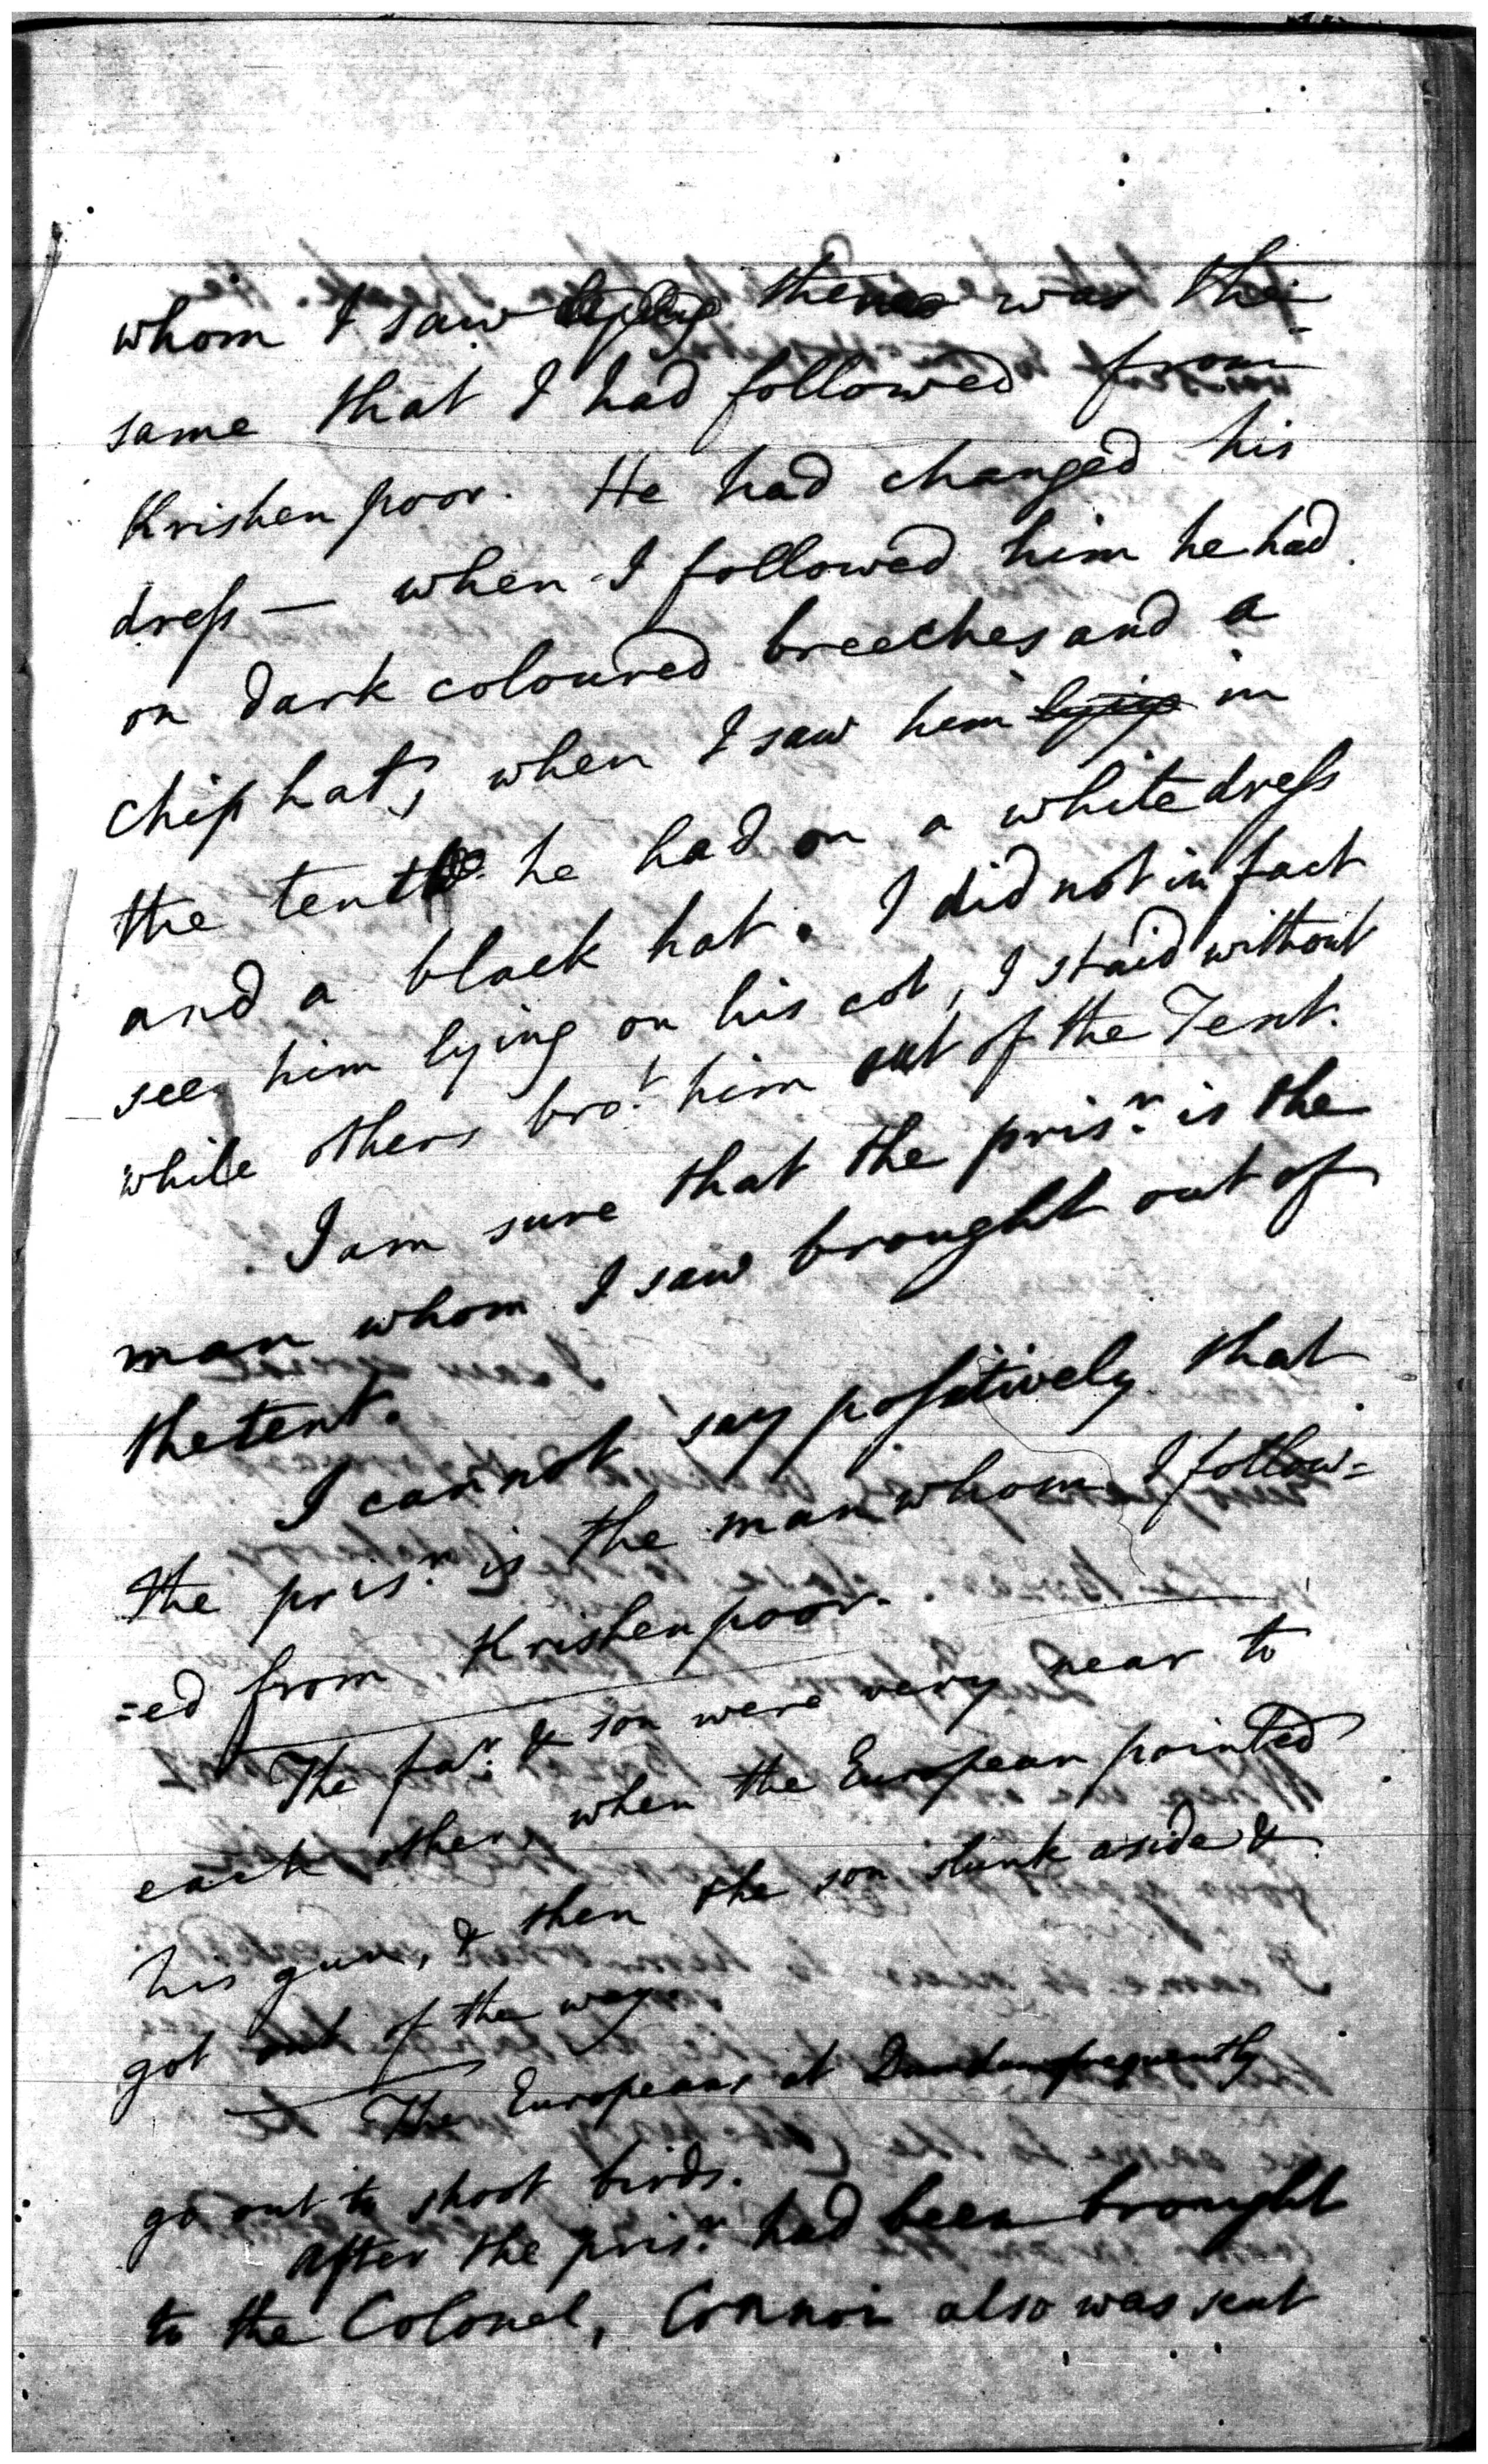 whom I saw lying there was the
same that I had followed from
Krishenpoor. He had changed his
dreſs — when I followed him he had
on dark coloured breeches and a
chip hat, when I saw him lying in
the tent he had on a white dreſs
and a black hat. I did not in fact
see him lying on his cot, I staid without
while others bro.t him out of the Tent.
I am sure that the pris.r is the
man whom I saw brought out of
the tent.
I cannot say poſitively that
the pris.r is the man whom I follow=
=ed from Krishenpoor.
The fa.r & son were very near to
each other, when the European pointed
his gun, & then the son slunk aside &
got out of the way.
The Europeans at Dumdum frequently
go out to shoot birds.
After the pris.r had been brought
to the Colonel, Connor also was sent